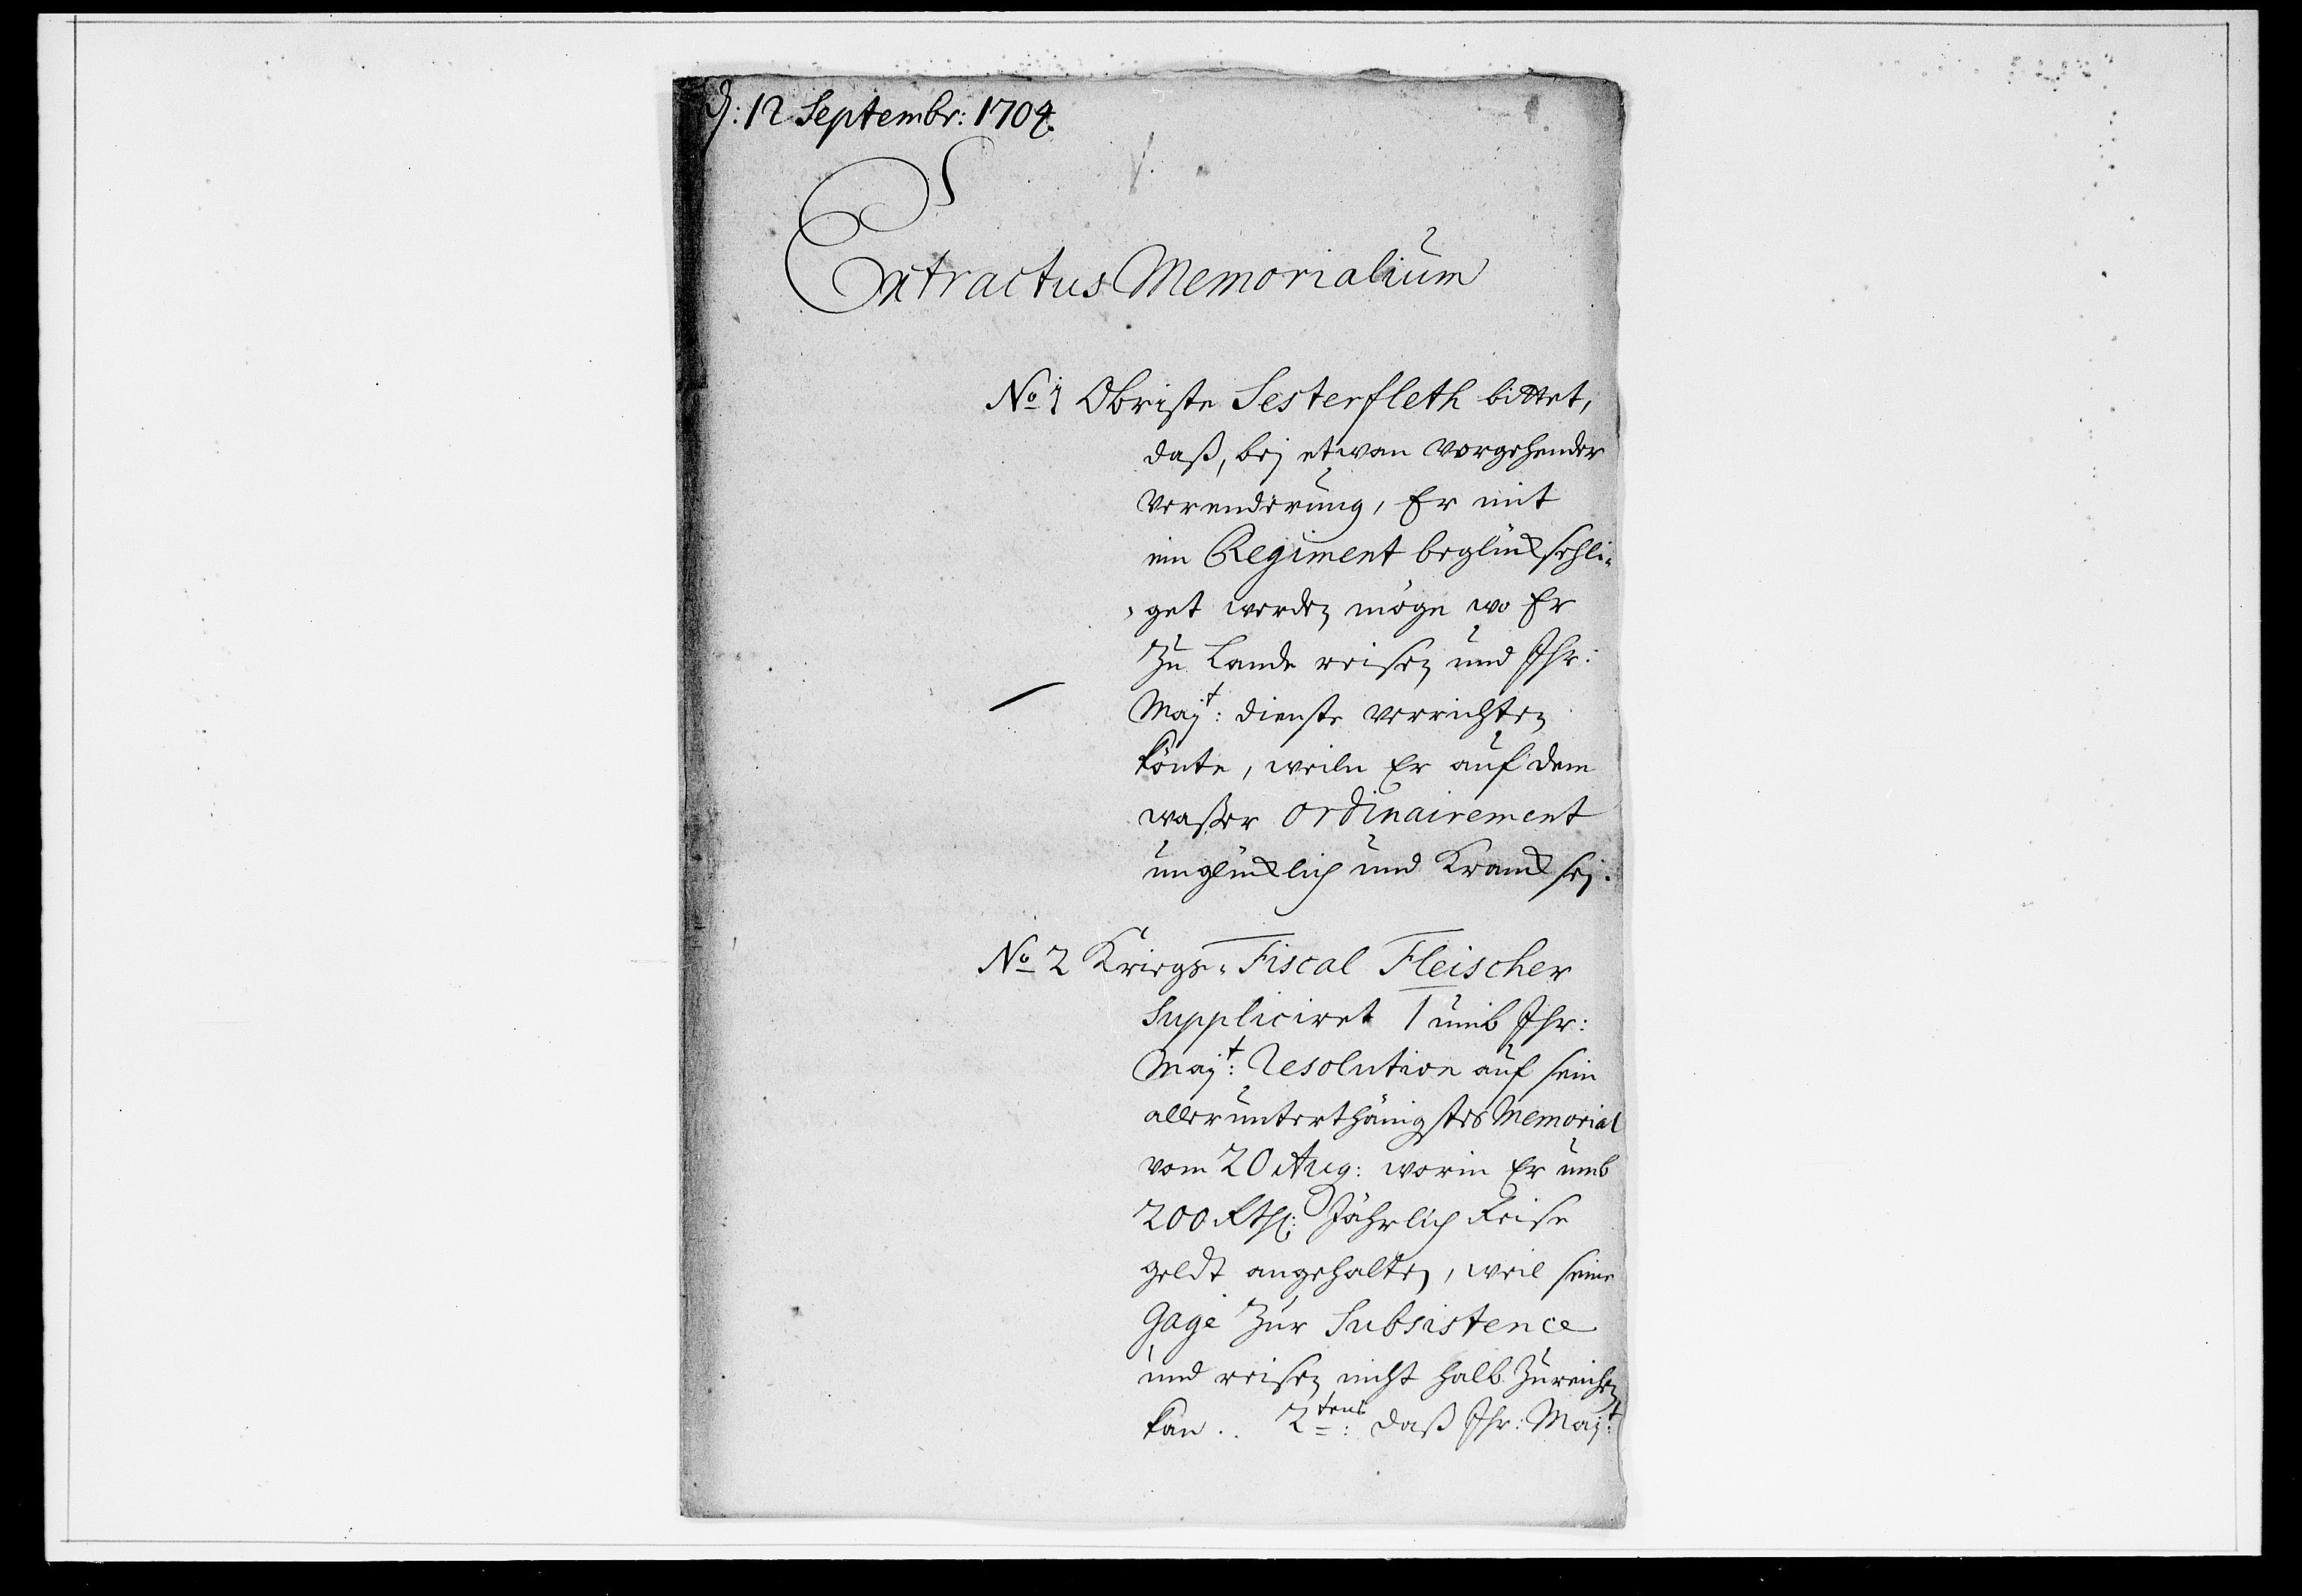 d: 12 Septembr: 1704.
Extractus Memorialium
No 1 Obriste Sesterfleth bittet,
daß, beÿ etwan vorgehender
verenderung, Er mit
ein Regiment beglückseeli-
-get werden möge wo Er
zu Lande reisen und Ihr:
Maÿt: dienste verrichten
könte, weiln Er auf dem
waßer ordinairement
unglücklich und Kranck seÿ.
No 2 Kriegs-Fiscal Fleischer
suppliciret 1 umb Ihr:
Maÿt: Resolution auf sein
allerunterthänigstes Memorial
vom 20 Aug: worin Er umb
200 Rthl: Jährlich Reise
geldt angehalten, weil seine
Gage zur Subsistence
und reisen nicht halb zureichen
kan. 2tens: daß Ihr: Maÿt: